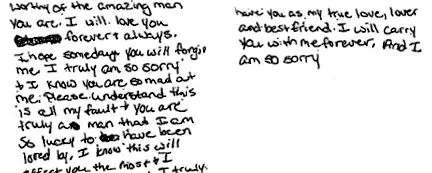 worthy of the amazing man
you are. I will love you
forever + always.
I hope someday you will forgive
me. I truly am so sorry
+ I know you are so mad at
me. Please understand this
is all my fault + you are
truly a man that I am
so lucky to have been
loved by. I know this will
effect you the most + I
truly
have you as my true love, lover
and best friend. I will carry
you with me forever. And I
am so sorry